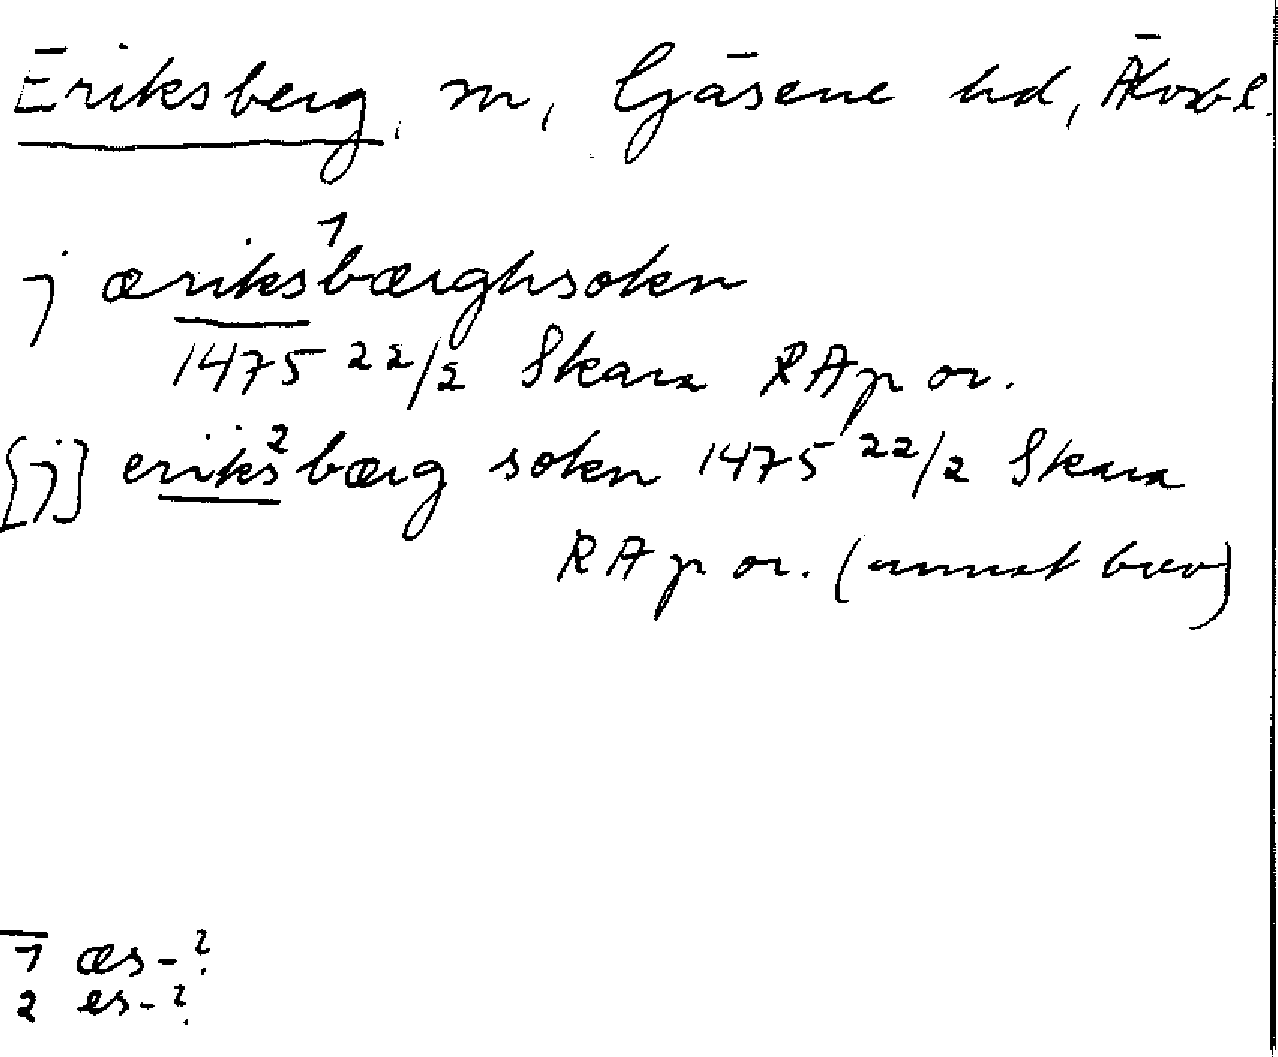 Eriksberg, sn, Gäsene hd, Älvsb l.
j æriks¹bærghsokn
1475 22/2 Skara RAp or.
[j] eriks²bærg sokn 1475 22/2 Skara
RAp or. (annat brev)
1 æs-?
2 es-?